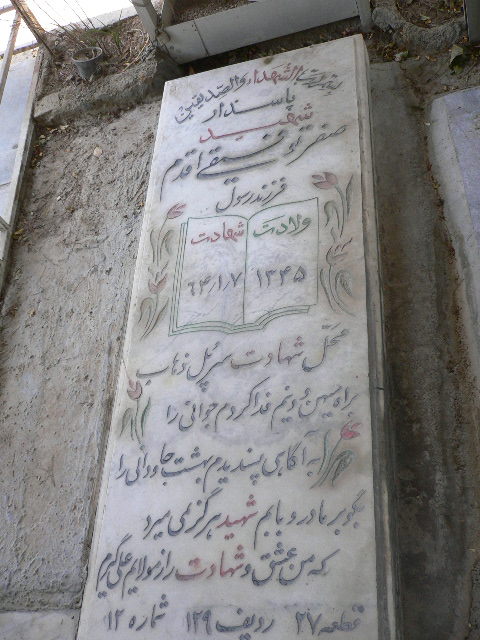 الشهداء والصدیقین
پاسدار
شهید
صفر توفیقی اقدم
فرزند رسول
ولادت شهادت
۱۳۴۵ ۶۴/۱/۷
محل شهادت سرپل ذهاب
براه میهن و دینم فدا کردم جوانی را
به آگاهی پسندیدم بهشت جاودانی را
بگو بر مادر و بابم شهید هرگز نمی میرد
که من عشق و شهادت را ز مولایم علی گیرم
قطعه ۲۷ ردیف ۱۲۹ شماره ۱۲